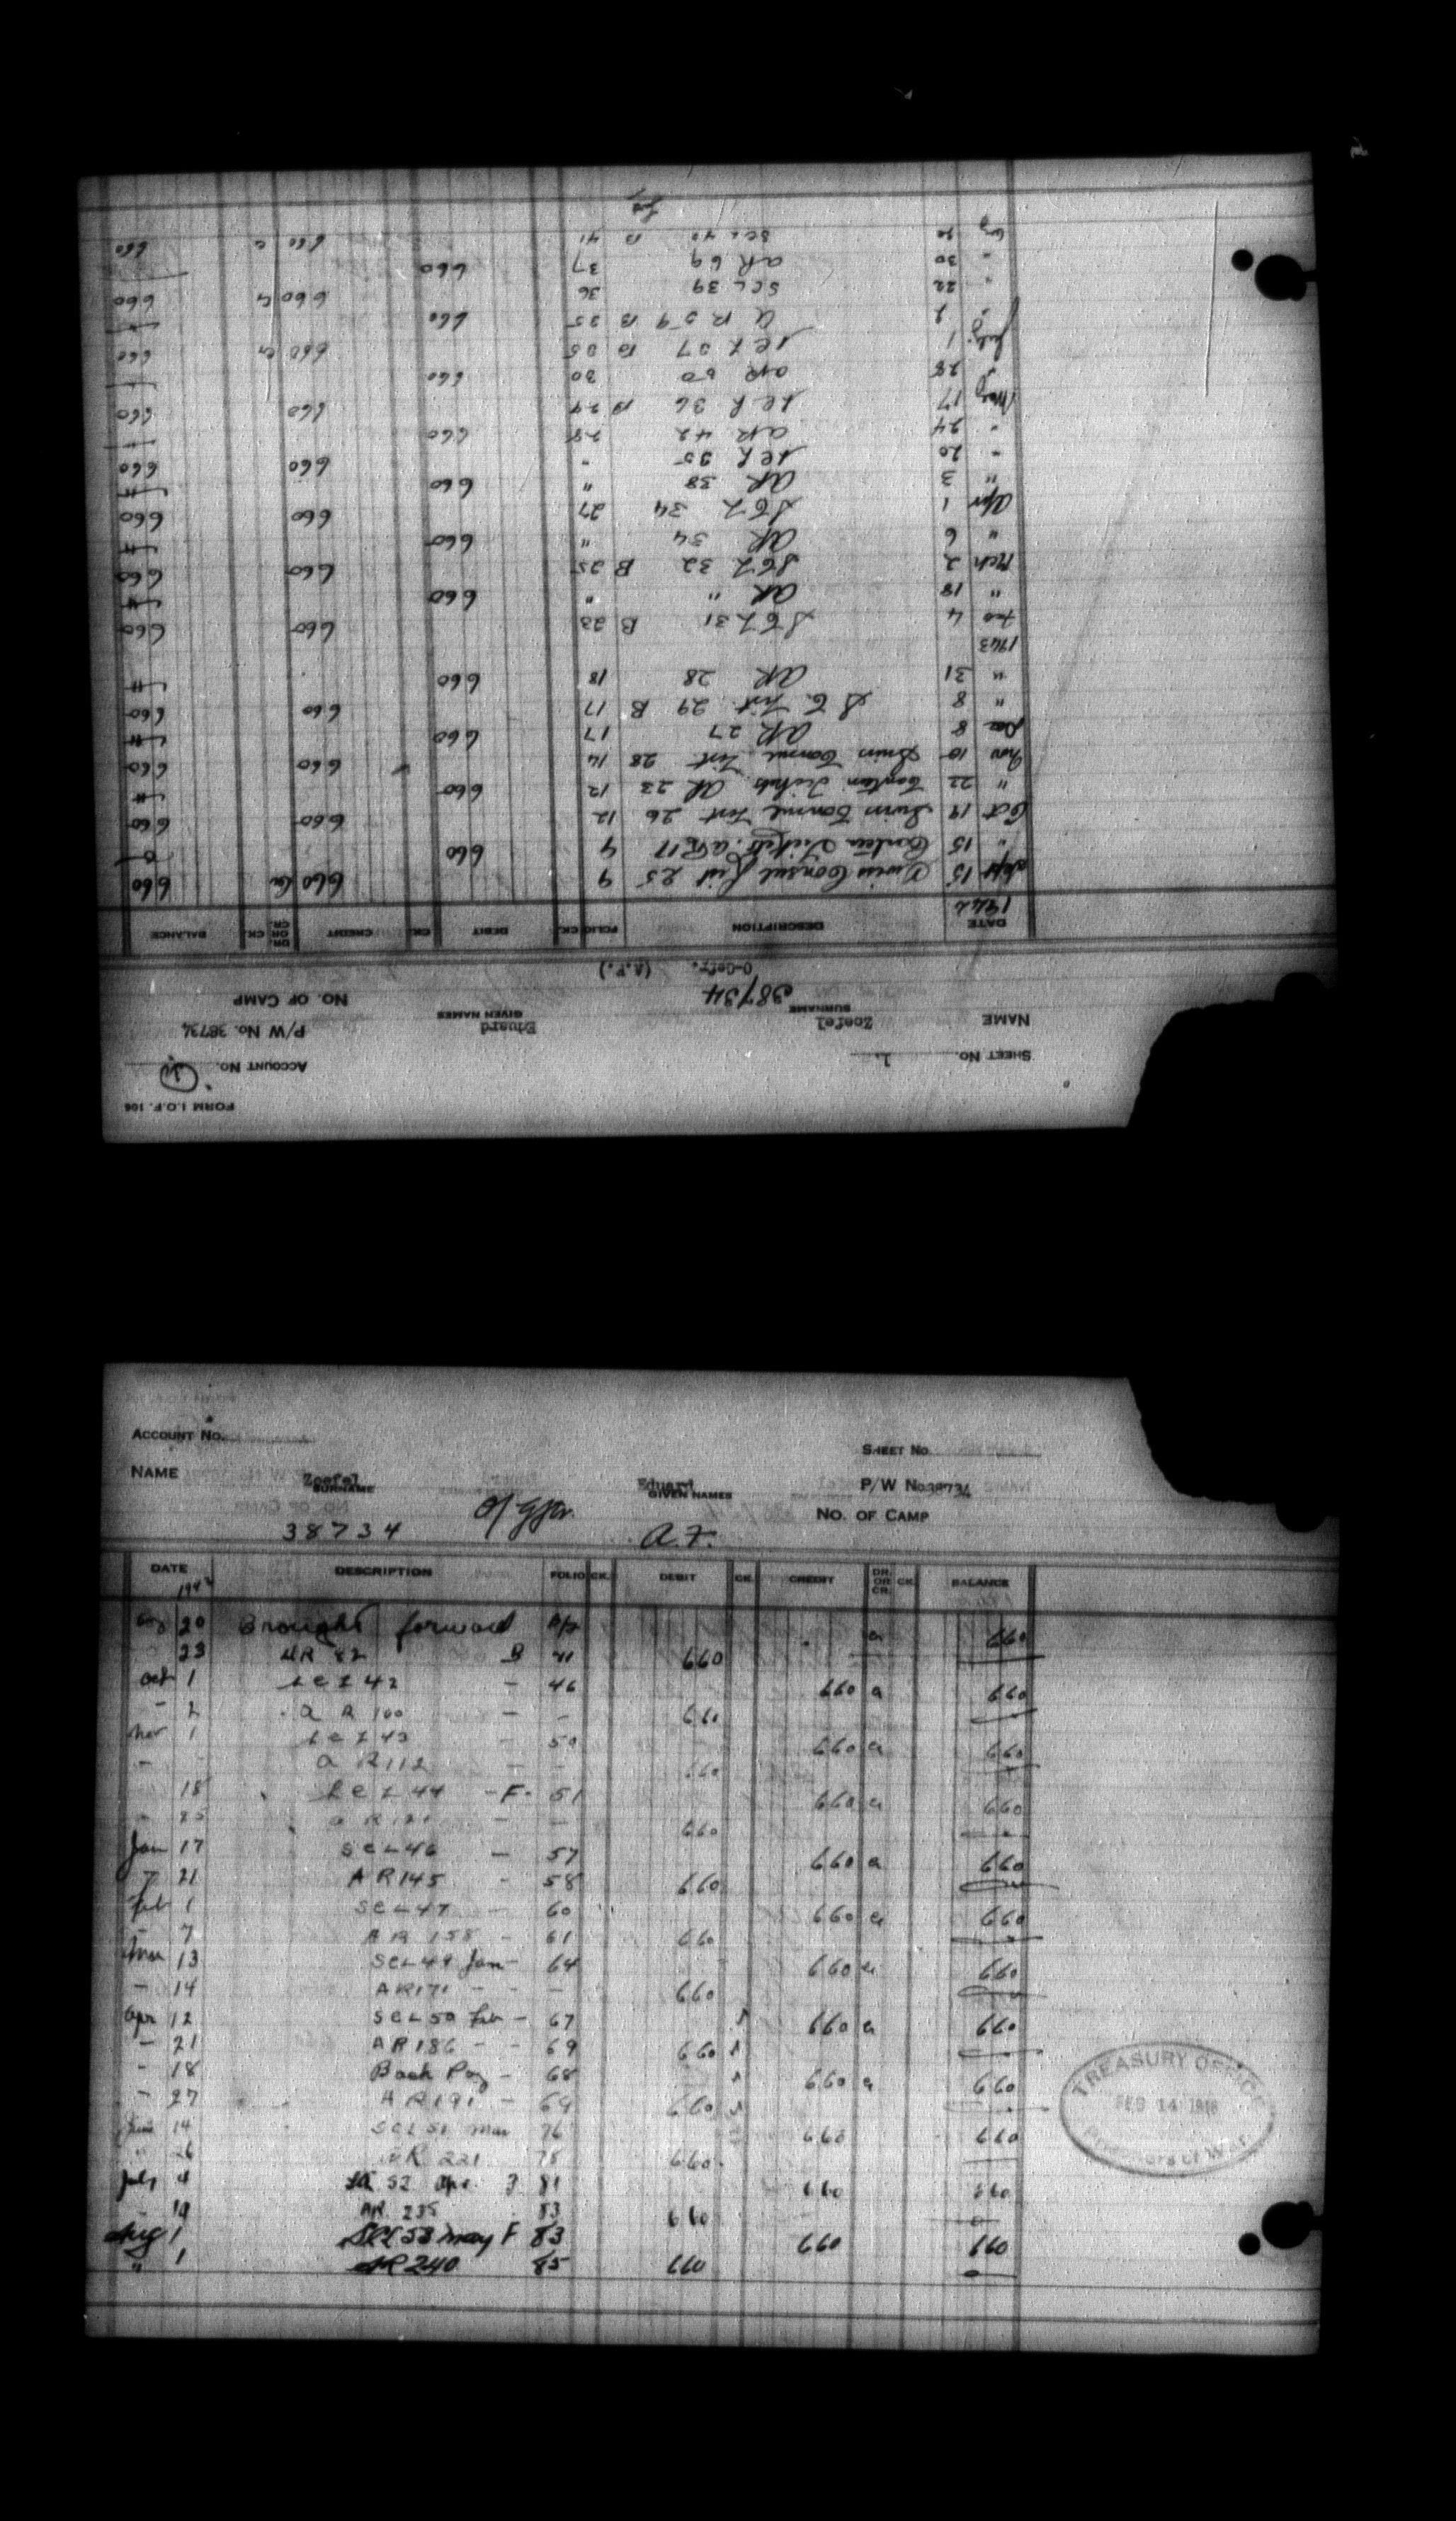 FORM I.O.F. 106
ACCOUNT No.
SHEET No. 1.
P/W No. 38734
NAME Zoefel Eduard
SURNAME GIVEN NAMES
NO. OF CAMP
38734
O-Gefr. (A.F.)
DATE DESCRIPTION FOLIO CK. DEBIT CK. CREDIT DR. OR CR. CK. BALANCE
1942
Sept 15 Swiss Consul List 25 9 660 Cr 660
" 15 Canteen Tickets AR 17 9 660
Oct 19 Swiss Consul List 26 12 660 660
" 22 Canteen Tickets AR 23 12 660
Nov 10 Swiss Consul List 28 14 660 660
Dec 8 AR 27 17 660
" 8 S.C. List 29 B 17 660 660
" 31 AR 28 18 660
1943
Feb 4 SCL 31 B 23 660 660
" 18 AR " " 660
Mch 2 SCL 32 B 25 660 660
" 6 AR 34 " 660
Apr 1 SCL 34 27 660 660
" 3 AR 38 " 660
" 20 SCL 35 " 660 660
" 24 AR 42 28 660
May 17 SCL 36 B 29 660 660
" 28 AR 50 30 660
July 1 SCL 37 B 35 660 Cr 660
" 2 AR 59 B 35 660
" 22 SCL 39 36 660 Cr 660
" 30 AR 69 37 660
Aug 20 SCL 40 B 41 660 Cr 660
ACCOUNT No.
SHEET No.
NAME Zoefel Eduard P/W No. 38734
SURNAME GIVEN NAMES
NO. OF CAMP
38734 O/Gfr. A.F.
DATE DESCRIPTION FOLIO CK. DEBIT CK. CREDIT DR. OR CR. CK. BALANCE
Aug 20 Brought forward 660
23 AR 82 B 41 660
Oct 1 SCL 42 - 46 660 660
- 2 AR 100 - - 660
Nov 1 SCL 43 - 50 660 660
- AR 112 - - 660
18 SCL 44 - F. 51 660 660
25 AR 121 - - 660
Jan 17 SCL 46 - 57 660 660
21 AR 145 - 58 660
Feb 1 SCL 47 - 60 660 660
- 7 AR 158 - 61 660
Mar 13 SCL 49 Jan - 64 660 660
- 14 AR 171 - - - 660
Apr 12 SCL 50 Feb - 67 660 660
- 21 AR 186 - - 69 660
- 18 Back Pay - 68 660 660
- 27 AR 191 - 69 660
June 14 SCL 51 Mar 76 660 660
" 26 AR 221 78 660
July 4 SCL 52 Apr. F 81 660 660
19 AR 235 83 660
Aug 1 SCL 53 May F 83 660 660
" 1 AR 240 85 660
TREASURY OFFICE
FEB 14 1946
PRISONERS OF WAR